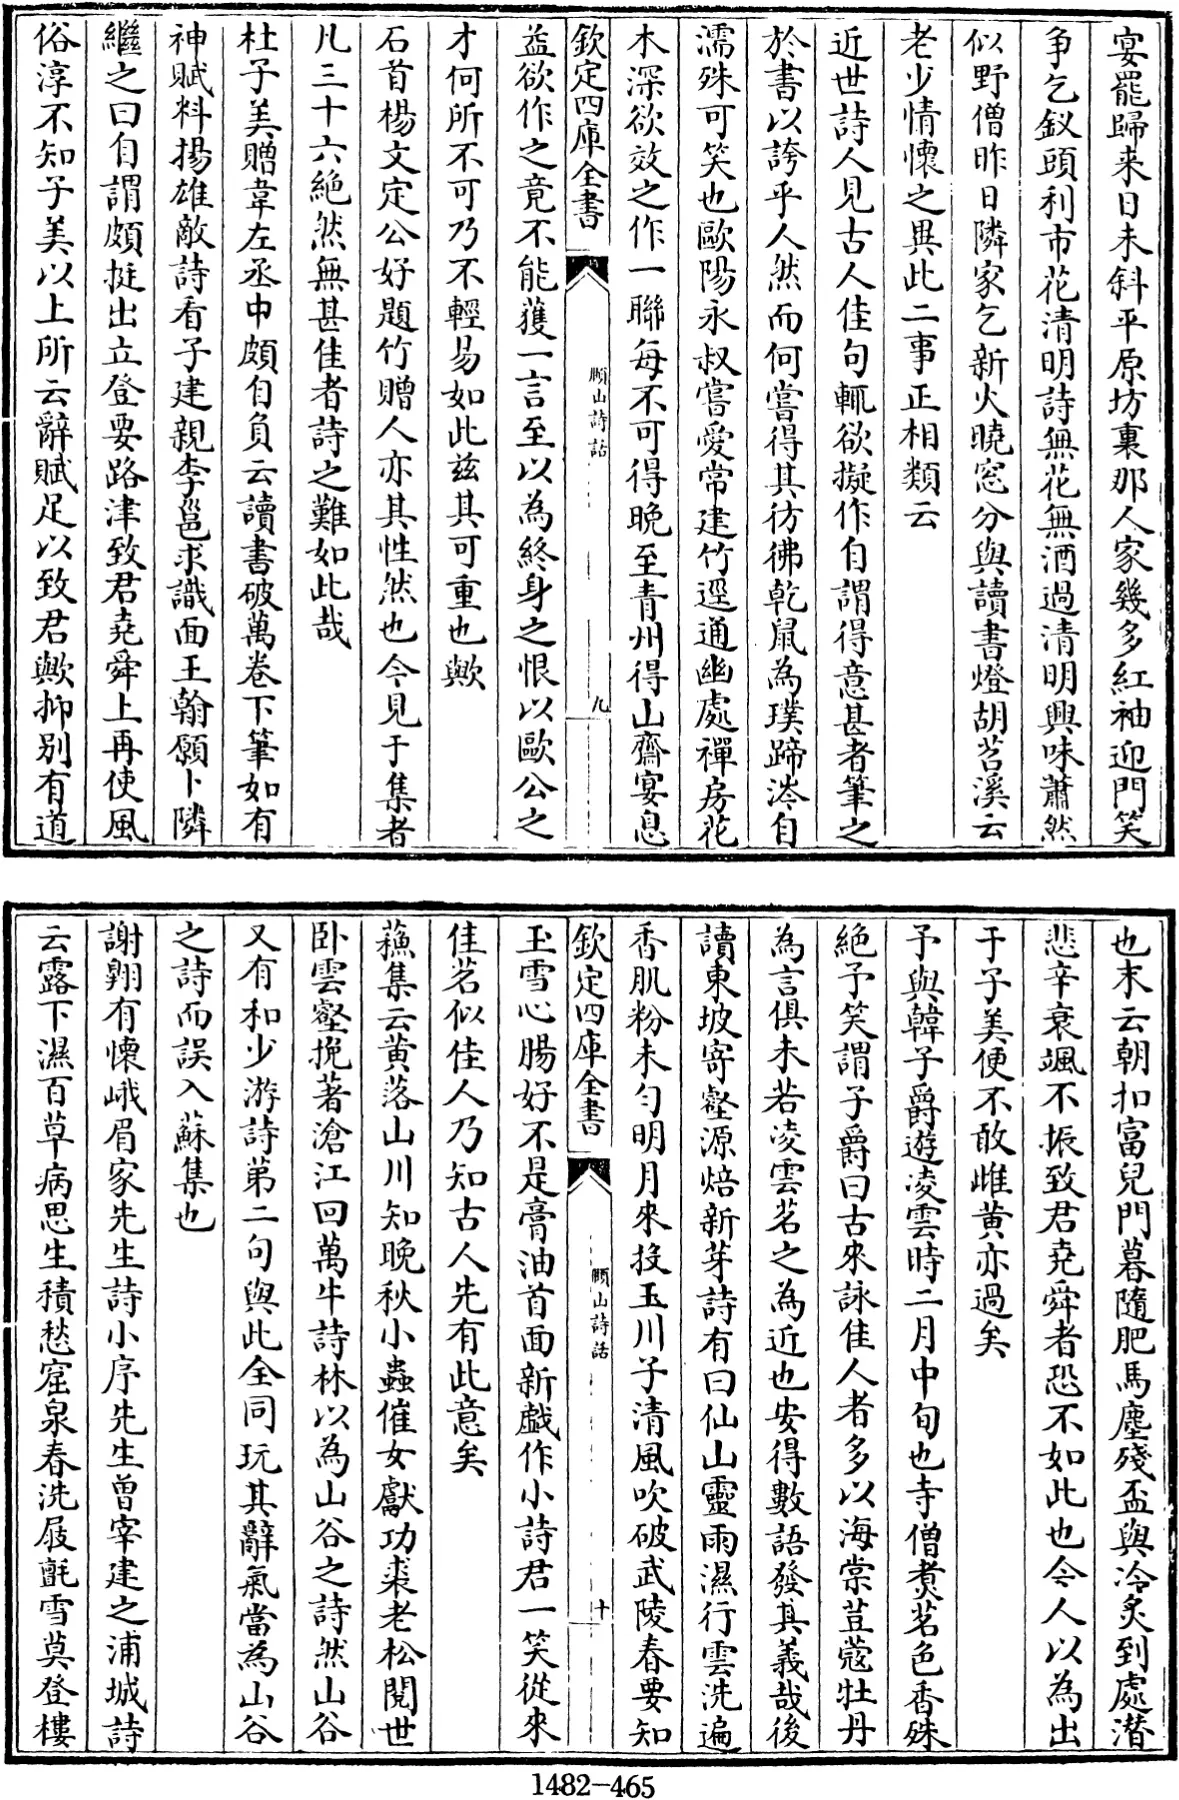 宴罷歸来日未斜平原坊裏那人家幾多紅袖迎門笑
争乞釵頭利市花清明詩無花無酒過清明興味蕭然
似野僧昨日隣家乞新火曉窓分與讀書燈胡苕溪云
老少情懷之異此二事正相類云
近世詩人見古人佳句輒欲擬作自謂得意甚者筆之
於書以誇乎人然而何嘗得其彷彿乾鼠為璞蹄涔自
濡殊可笑也歐陽永叔嘗愛常建竹逕通幽處禪房花
木深欲效之作一聯每不可得晩至青州得山齋宴息
欽定四庫全書
頤山詩話
九
益欲作之竟不能獲一言至以為終身之恨以歐公之
才何所不可乃不輕易如此兹其可重也歟
石首楊文定公好題竹贈人亦其性然也今見于集者
凡三十六絶然無甚佳者詩之難如此哉
杜子美贈韋左丞中頗自負云讀書破萬卷下筆如有
神賦料揚雄敵詩看子建親李邕求識面王翰願卜隣
繼之曰自謂頗挺出立登要路津致君堯舜上再使風
俗淳不知子美以上所云辭賦足以致君歟抑别有道
也末云朝扣富兒門暮隨肥馬塵殘盃與冷炙到處潜
悲辛衰颯不振致君堯舜者恐不如此也今人以為出
于子美便不敢雌黄亦過矣
予與韓子爵遊凌雲時二月中旬也寺僧煑茗色香殊
絶予笑謂子爵曰古來詠佳人者多以海棠荳蔻牡丹
為言俱未若凌雲茗之為近也安得數語發其義哉後
讀東坡寄壑源焙新芽詩有曰仙山靈雨濕行雲洗遍
香肌粉未勻明月來投玉川子清風吹破武陵春要知
欽定四庫全書
頤山詩話
十
玉雪心腸好不是膏油首面新戯作小詩君一笑從來
佳茗似佳人乃知古人先有此意矣
蘓集云黄落山川知晩秋小蟲催女獻功裘老松閲世
卧雲壑挽著滄江回萬牛詩林以為山谷之詩然山谷
又有和少游詩第二句與此全同玩其辭氣當為山谷
之詩而誤入蘇集也
謝翺有懷峨眉家先生詩小序先生曽宰建之浦城詩
云露下濕百草病思生積愁窟泉春洗屐氈雪莫登樓
1482-465